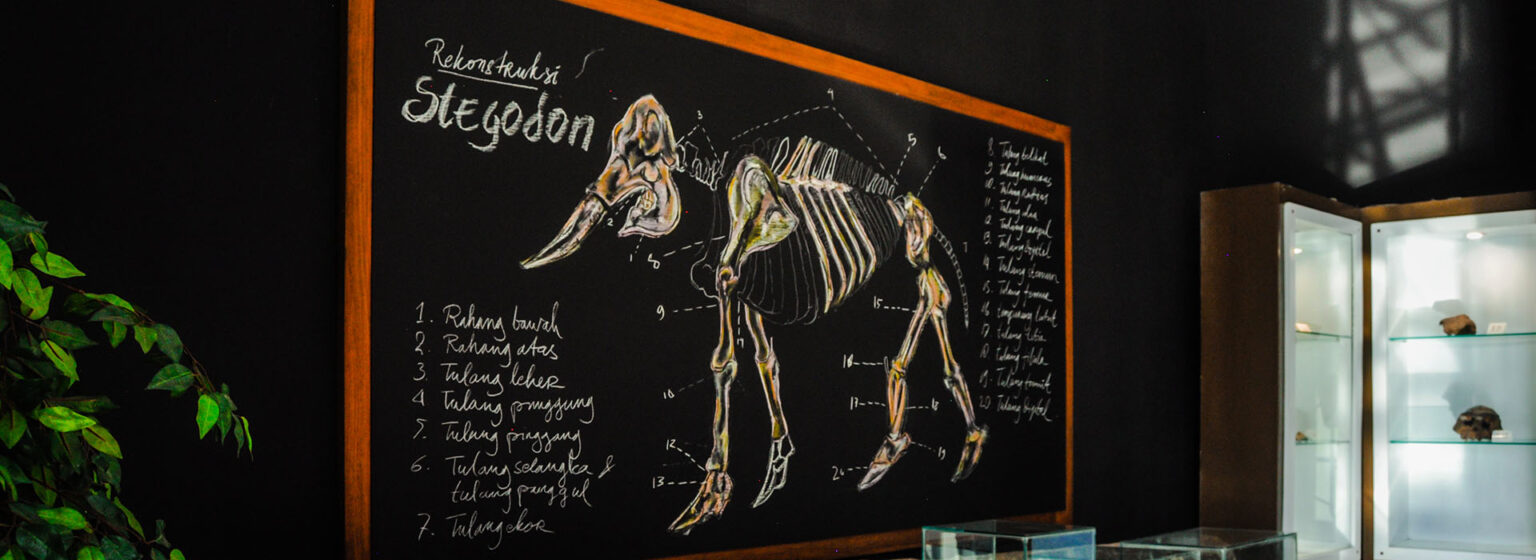 Rekonstruksi
Stegodon
1. Rahang bawah
2. Rahang atas
3. Tulang leher
4 Tulang punggung
5. Tulang pinggang
6. Tulang selangka &
tulang panggul
7. Tulang ekor
3
4
5
6
7
2
1
8
9
10
11
12
13
15
16
17
18
19
20
8. Tulang belikat
9
10. Tulang
11. Tulang
12 Tulang
13. Tulang Digital
14 Tulang
15. Tulang femur
16
17 Tulang Tibia
18 Tulang
19. Tulang
20 Tulang Digital